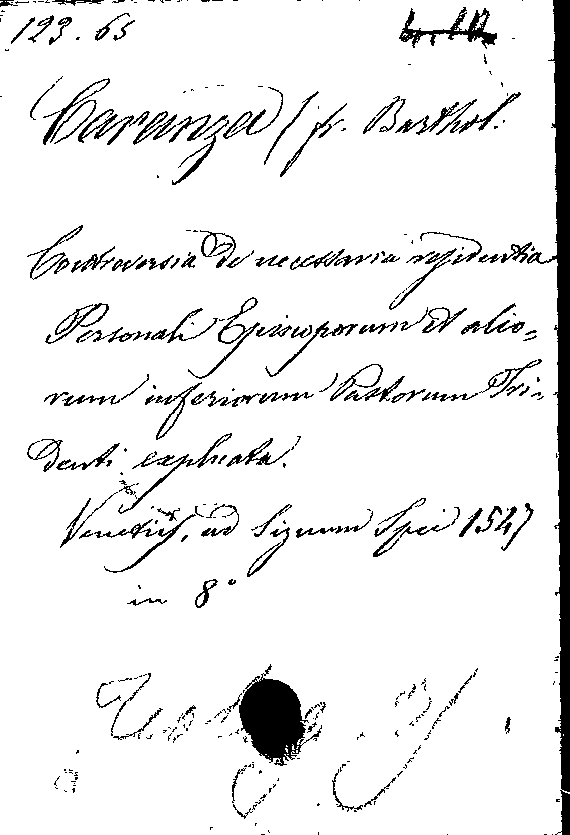 123.65
Caranza / fr. Barthol:
Controversia de necessaria residentia
Personali Episcoporum et alio=
rum inferiorum Pastorum Tri=
denti explicata.
Venetiis, ad Signum Spei 1547
in 8°